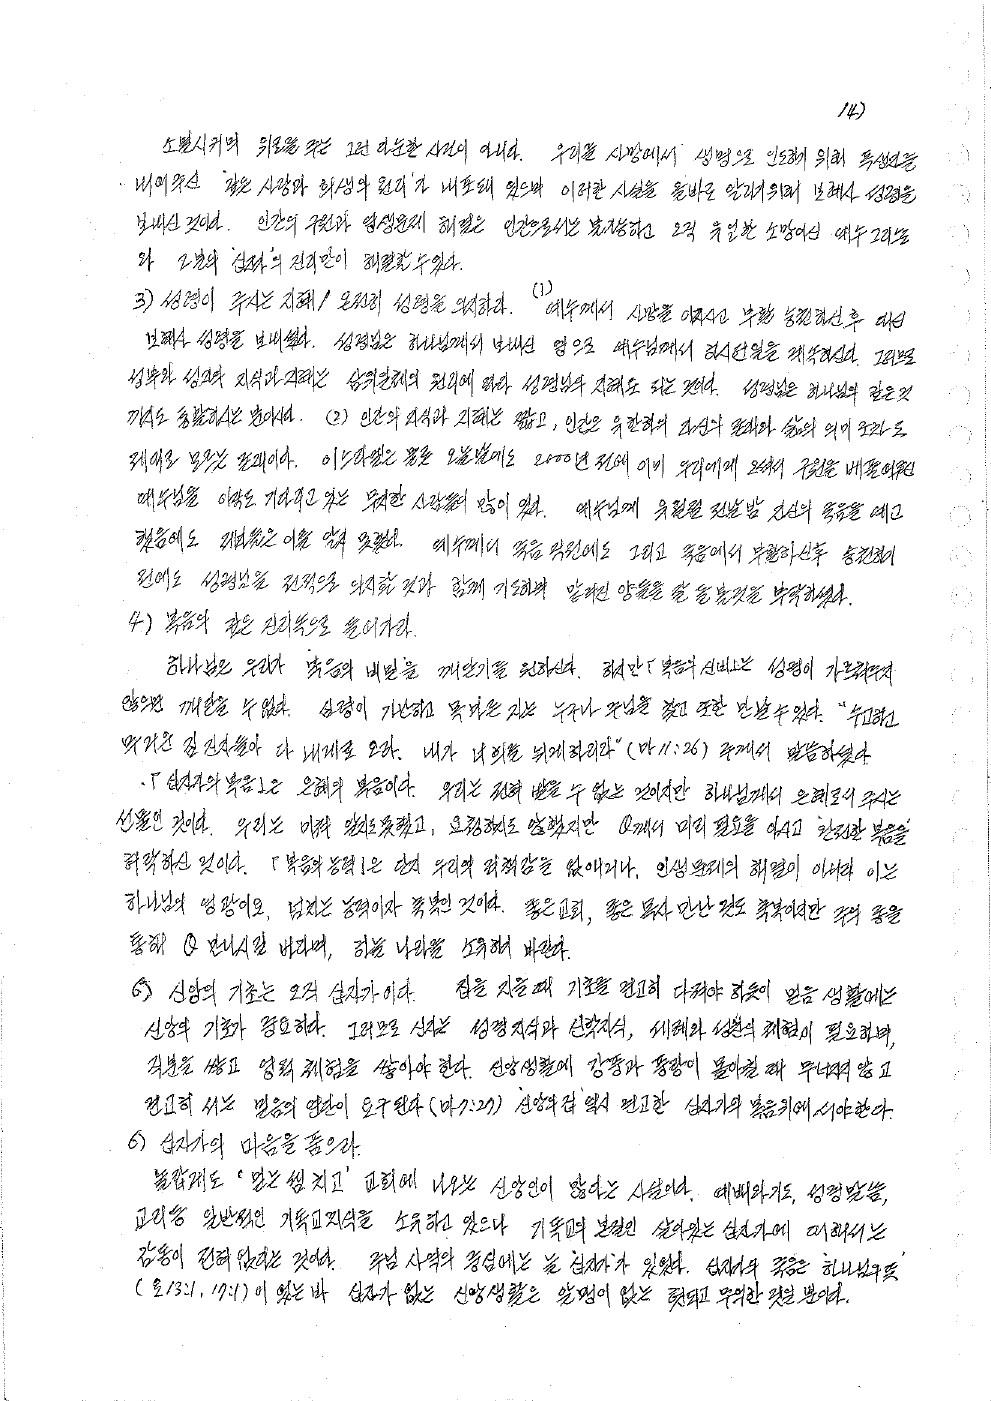 14)
소멸시키며 위로를 주는 그런 단순한 사건이 아니다. 우리를 사망에서 생명으로 인도하기 위해 독생자를
내어주신 '깊은 사랑과 희생의 원리'가 내포돼 있으며 이러한 사실을 올바로 알리기위해 보혜사 성령을
보내신 것이다. 인간의 구원과 영생문제 해결은 인간으로서는 불가능하고 오직 유일한 소망이신 예수 그리스도
와 그분의 '십자가'의 진리만이 해결할 수 있다.
3) 성령이 주시는 지혜/ 온전히 성령을 의지하라. (1) 예수께서 사망을 이기시고 부활 승천하신 후 대신
보혜사 성령을 보내셨다. 성령님은 하나님께서 보내신 영으로 예수님께서 하시던일을 계속하신다. 그러므로
성부와 성자의 지식과 지혜는 삼위일체의 원리에 따라 성령님의 지혜도 되는 것이다. 성령님은 하나님의 깊은 것
까지도 통달하시는 분이시다. (2) 인간의 지식과 지혜는 짧고, 인간은 유한하여 자신의 문제와 삶의 의미 조차도
제대로 모르는 존재이다. 이스라엘은 물론 오늘날에도 2000년 전에 이미 우리에게 오셔서 구원을 베풀어주신
예수님을 아직도 기다리고 있는 무지한 사람들이 많이 있다. 예수님께 유월절 전날 밤 자신의 죽음을 예고
했음에도 제자들은 이를 알지 못했다. 예수께서 죽음 직전에도 그리고 죽음에서 부활하신후 승천하기
전에도 성령님을 전적으로 의지할 것과 함께 기도하며 맡겨진 양들을 잘 돌볼것을 부탁하셨다.
4) 복음의 깊은 진리속으로 들어가라.
하나님은 우리가 '복음의 비밀'을 깨닫기를 원하신다. 하지만 「복음의 신비」는 성령이 가르쳐주지
않으면 깨달을 수 없다. 심령이 가난하고 목마른 자는 누구나 주님을 찾고 또한 만날 수 있다. "수고하고
무거운 짐 진자들아 다 내게로 오라. 내가 너희를 쉬게하리라" (마 11:28) 주께서 말씀하셨다.
·「십자가의 복음」은 은혜의 복음이다. 우리는 전혀 받을 수 없는 것이지만 하나님께서 은혜로서 주시는
선물인 것이다. 우리는 미처 알지도못했고, 요청하지도 않했지만 께서 미리 필요을 아시고 '완전한 복음'을
허락하신 것이다. 「복음의 능력」은 단지 우리의 죄책감을 없애거나, 인생 문제의 해결이 아니라 이는
하나님의 영광이요, 넘치는 능력이자 축복인 것이다. 좋은교회, 좋은 목사 만난 것도 축복이지만 주의 종을
통해 만나시길 바라며, 하늘 나라을 소유하기 바란다.
5) 신앙의 기초는 오직 십자가이다. 집을 지을 때 기초를 견고히 다져야 하듯이 믿음 생활에는
신앙의 기초가 중요하다. 그러므로 신자는 성경지식과 신학지식, 세례와 성찬의 체험이 필요하며,
직분을 쌓고 영적 체험을 쌓아야 한다. 신앙생활에 강풍과 풍랑이 몰아칠 때 무너지지 않고
견고히 서는 믿음의 연단이 요구된다 (마 7:27) 신앙의 집 역시 견고한 십자가의 복음위에 서야 한다.
6) 십자가의 마음을 품으라.
놀랍게도 '믿는 셈 치고' 교회에 나오는 신앙인이 많다는 사실이다. 예배와 기도, 성경말씀,
교리등 일반적인 기독교지식을 소유하고 있으나 기독교의 본질인 살아있는 십자가에 대해서는
감동이 전혀 없다는 것이다. 주님 사역의 중심에는 늘 '십자가'가 있었다. 십자가의 죽음은 '하나님의 뜻'
(요 13:1, 17:1) 이 있는 바 십자가 없는 신앙생활은 생명이 없는 헛되고 무의한 것일 뿐이다.